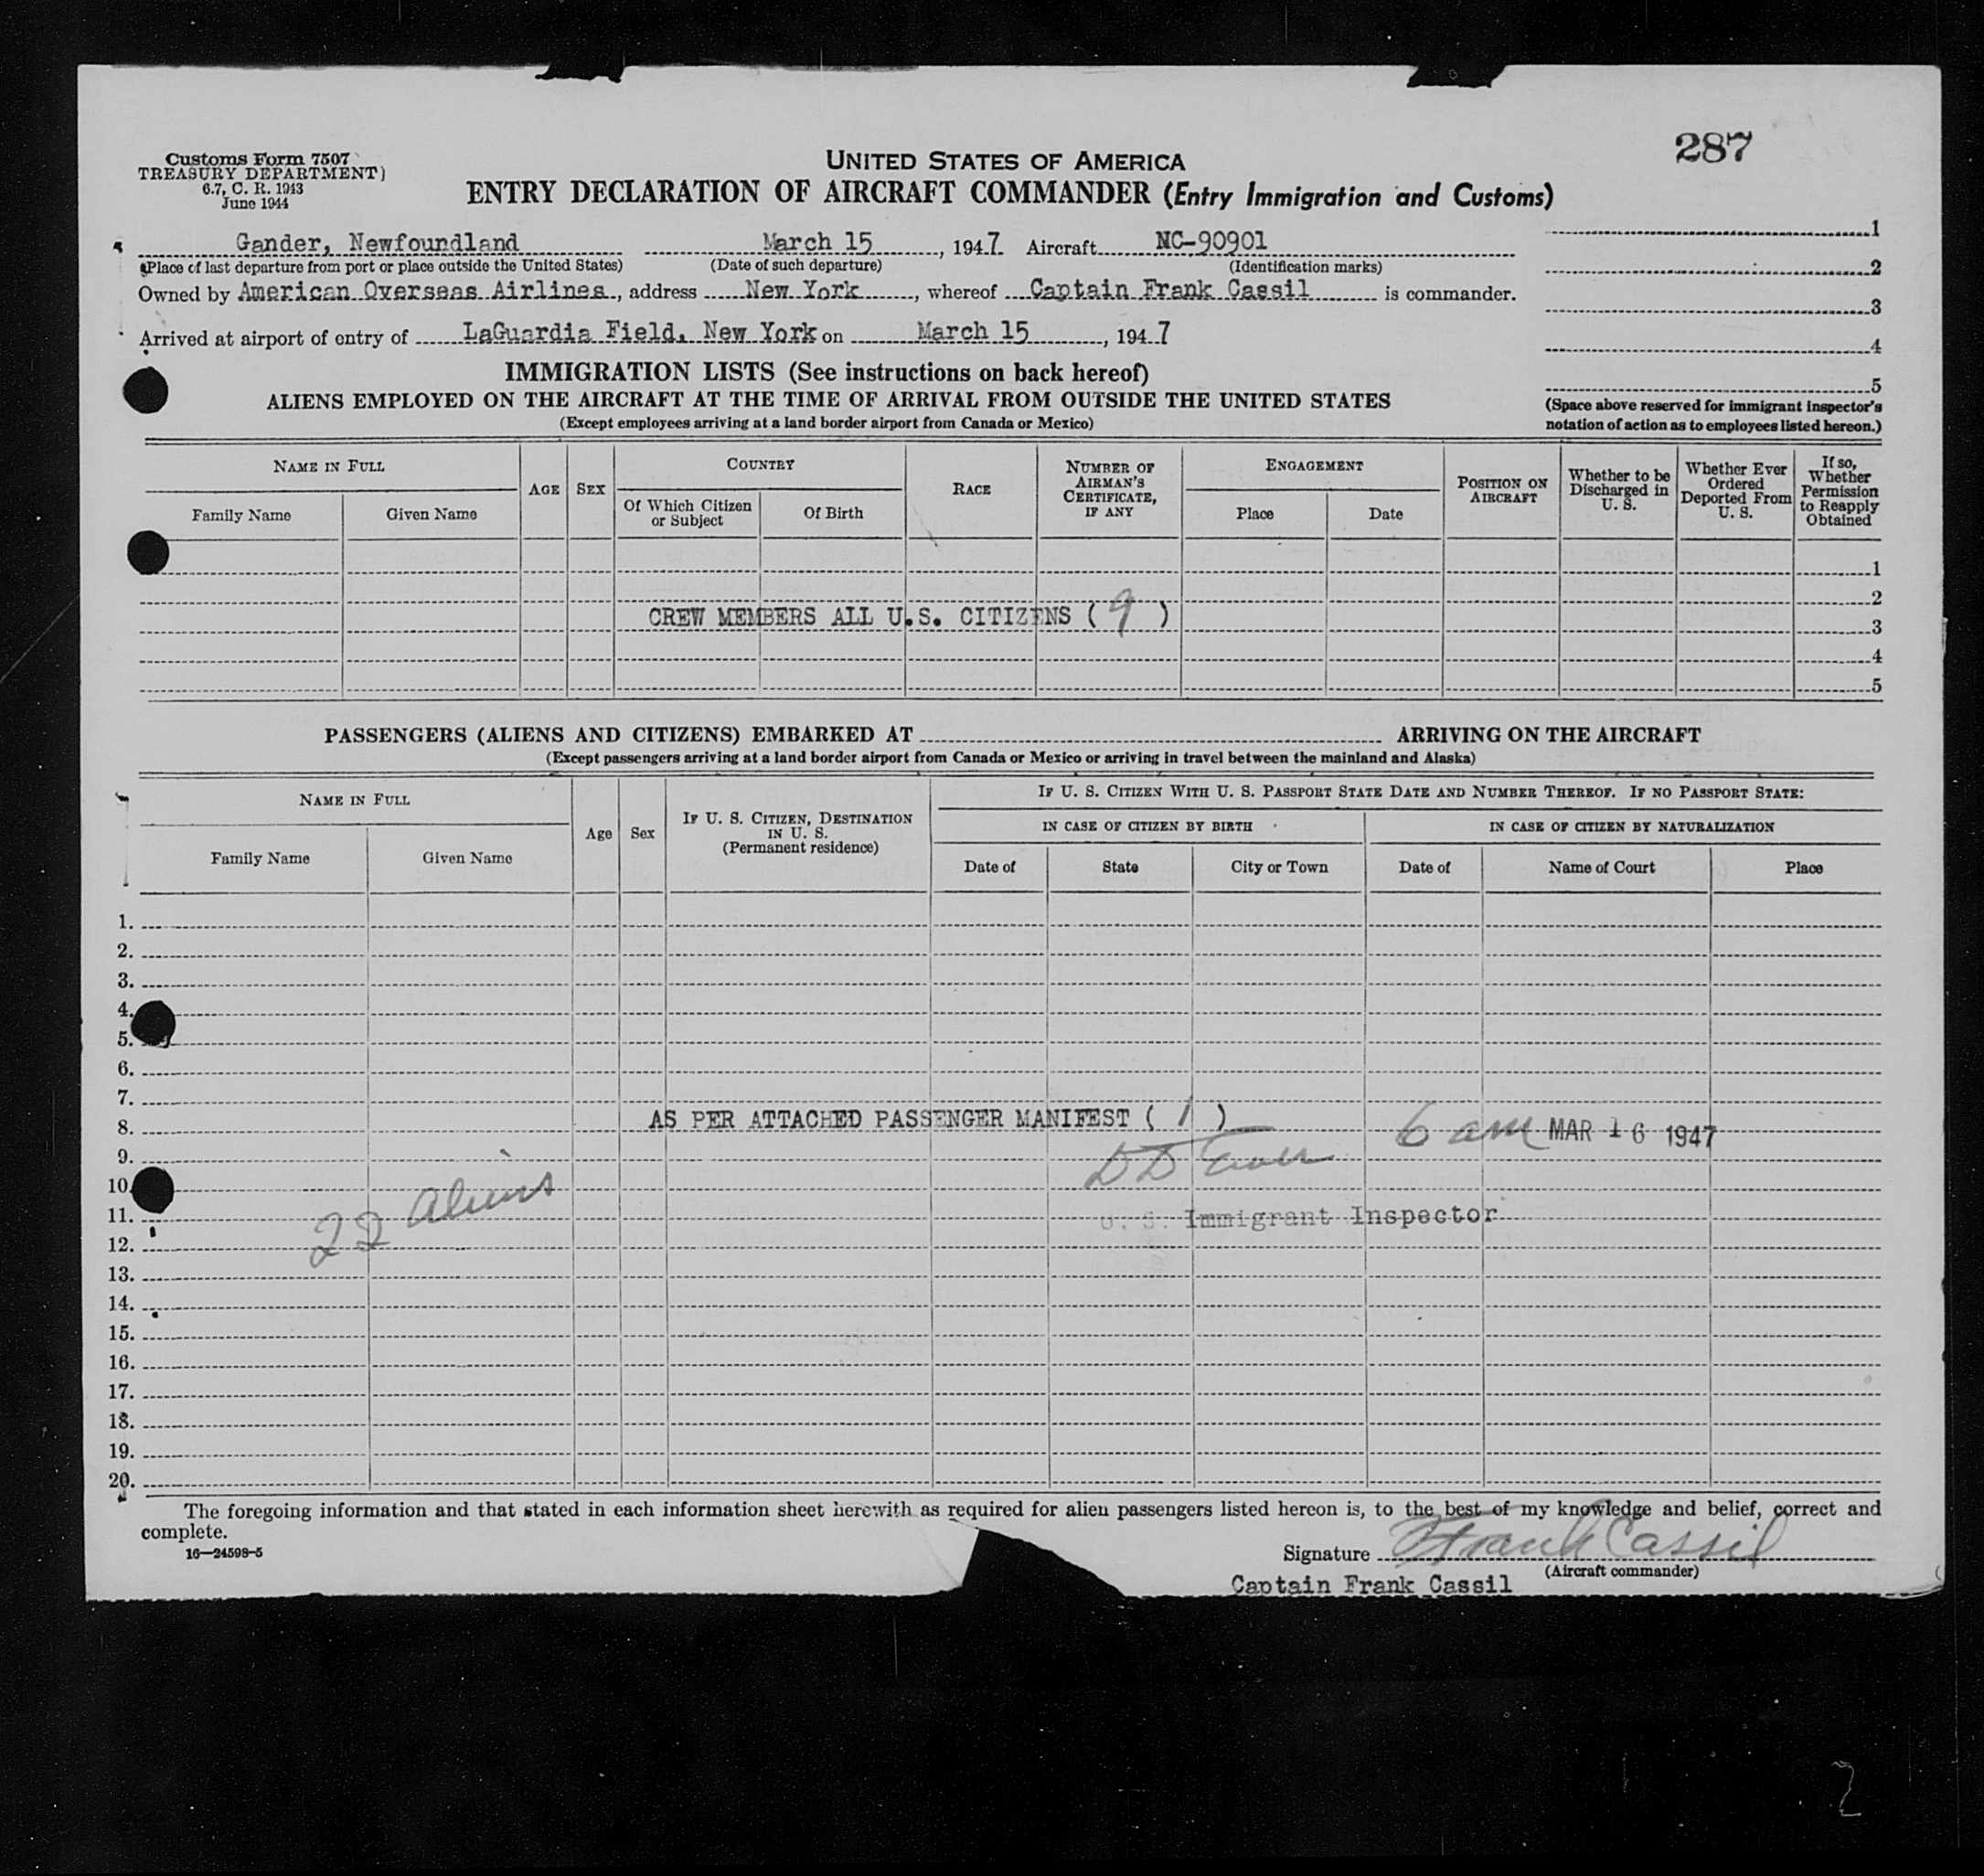 287
Customs Form 7507
TREASURY DEPARTMENT)
6.7, C. R. 1943
June 1944
UNITED STATES OF AMERICA
ENTRY DECLARATION OF AIRCRAFT COMMANDER (Entry Immigration and Customs)
Gander, Newfoundland March 15, 1947 Aircraft NC-90901
(Place of last departure from port or place outside the United States) (Date of such departure) (Identification marks)
Owned by American Overseas Airlines, address New York, whereof Captain Frank Cassil is commander.
Arrived at airport of entry of LaGuardia Field, New York on March 15, 1947
1
2
3
4
5
(Space above reserved for immigrant inspector's
notation of action as to employees listed hereon.)
IMMIGRATION LISTS (See instructions on back hereof)
ALIENS EMPLOYED ON THE AIRCRAFT AT THE TIME OF ARRIVAL FROM OUTSIDE THE UNITED STATES
(Except employees arriving at a land border airport from Canada or Mexico)
NAME IN FULL
Family Name Given Name
AGE SEX
COUNTRY
Of Which Citizen or Subject
Of Birth
RACE
NUMBER OF AIRMAN'S CERTIFICATE, IF ANY
ENGAGEMENT
Place Date
POSITION ON AIRCRAFT
Whether to be Discharged in U. S.
Whether Ever Ordered Deported From U. S.
If so, Whether Permission to Reapply Obtained
1
2
CREW MEMBERS ALL U.S. CITIZENS ( 9 )
3
4
5
PASSENGERS (ALIENS AND CITIZENS) EMBARKED AT ARRIVING ON THE AIRCRAFT
(Except passengers arriving at a land border airport from Canada or Mexico or arriving in travel between the mainland and Alaska)
NAME IN FULL
Family Name Given Name
Age Sex
IF U. S. CITIZEN, DESTINATION IN U. S.
(Permanent residence)
IF U. S. CITIZEN WITH U. S. PASSPORT STATE DATE AND NUMBER THEREOF. IF NO PASSPORT STATE:
IN CASE OF CITIZEN BY BIRTH IN CASE OF CITIZEN BY NATURALIZATION
Date of State City or Town Date of Name of Court Place
1.
2.
3.
4.
5.
6.
7.
AS PER ATTACHED PASSENGER MANIFEST ( 1 )
8. 6 am MAR 16 1947
9.
10.
22 Aliens
11. U. S. Immigrant Inspector
12.
13.
14.
15.
16.
17.
18.
19.
20.
The foregoing information and that stated in each information sheet herewith as required for alien passengers listed hereon is, to the best of my knowledge and belief, correct and
complete.
16—24598-5
Signature Frank Cassil
(Aircraft commander)
Captain Frank Cassil
2